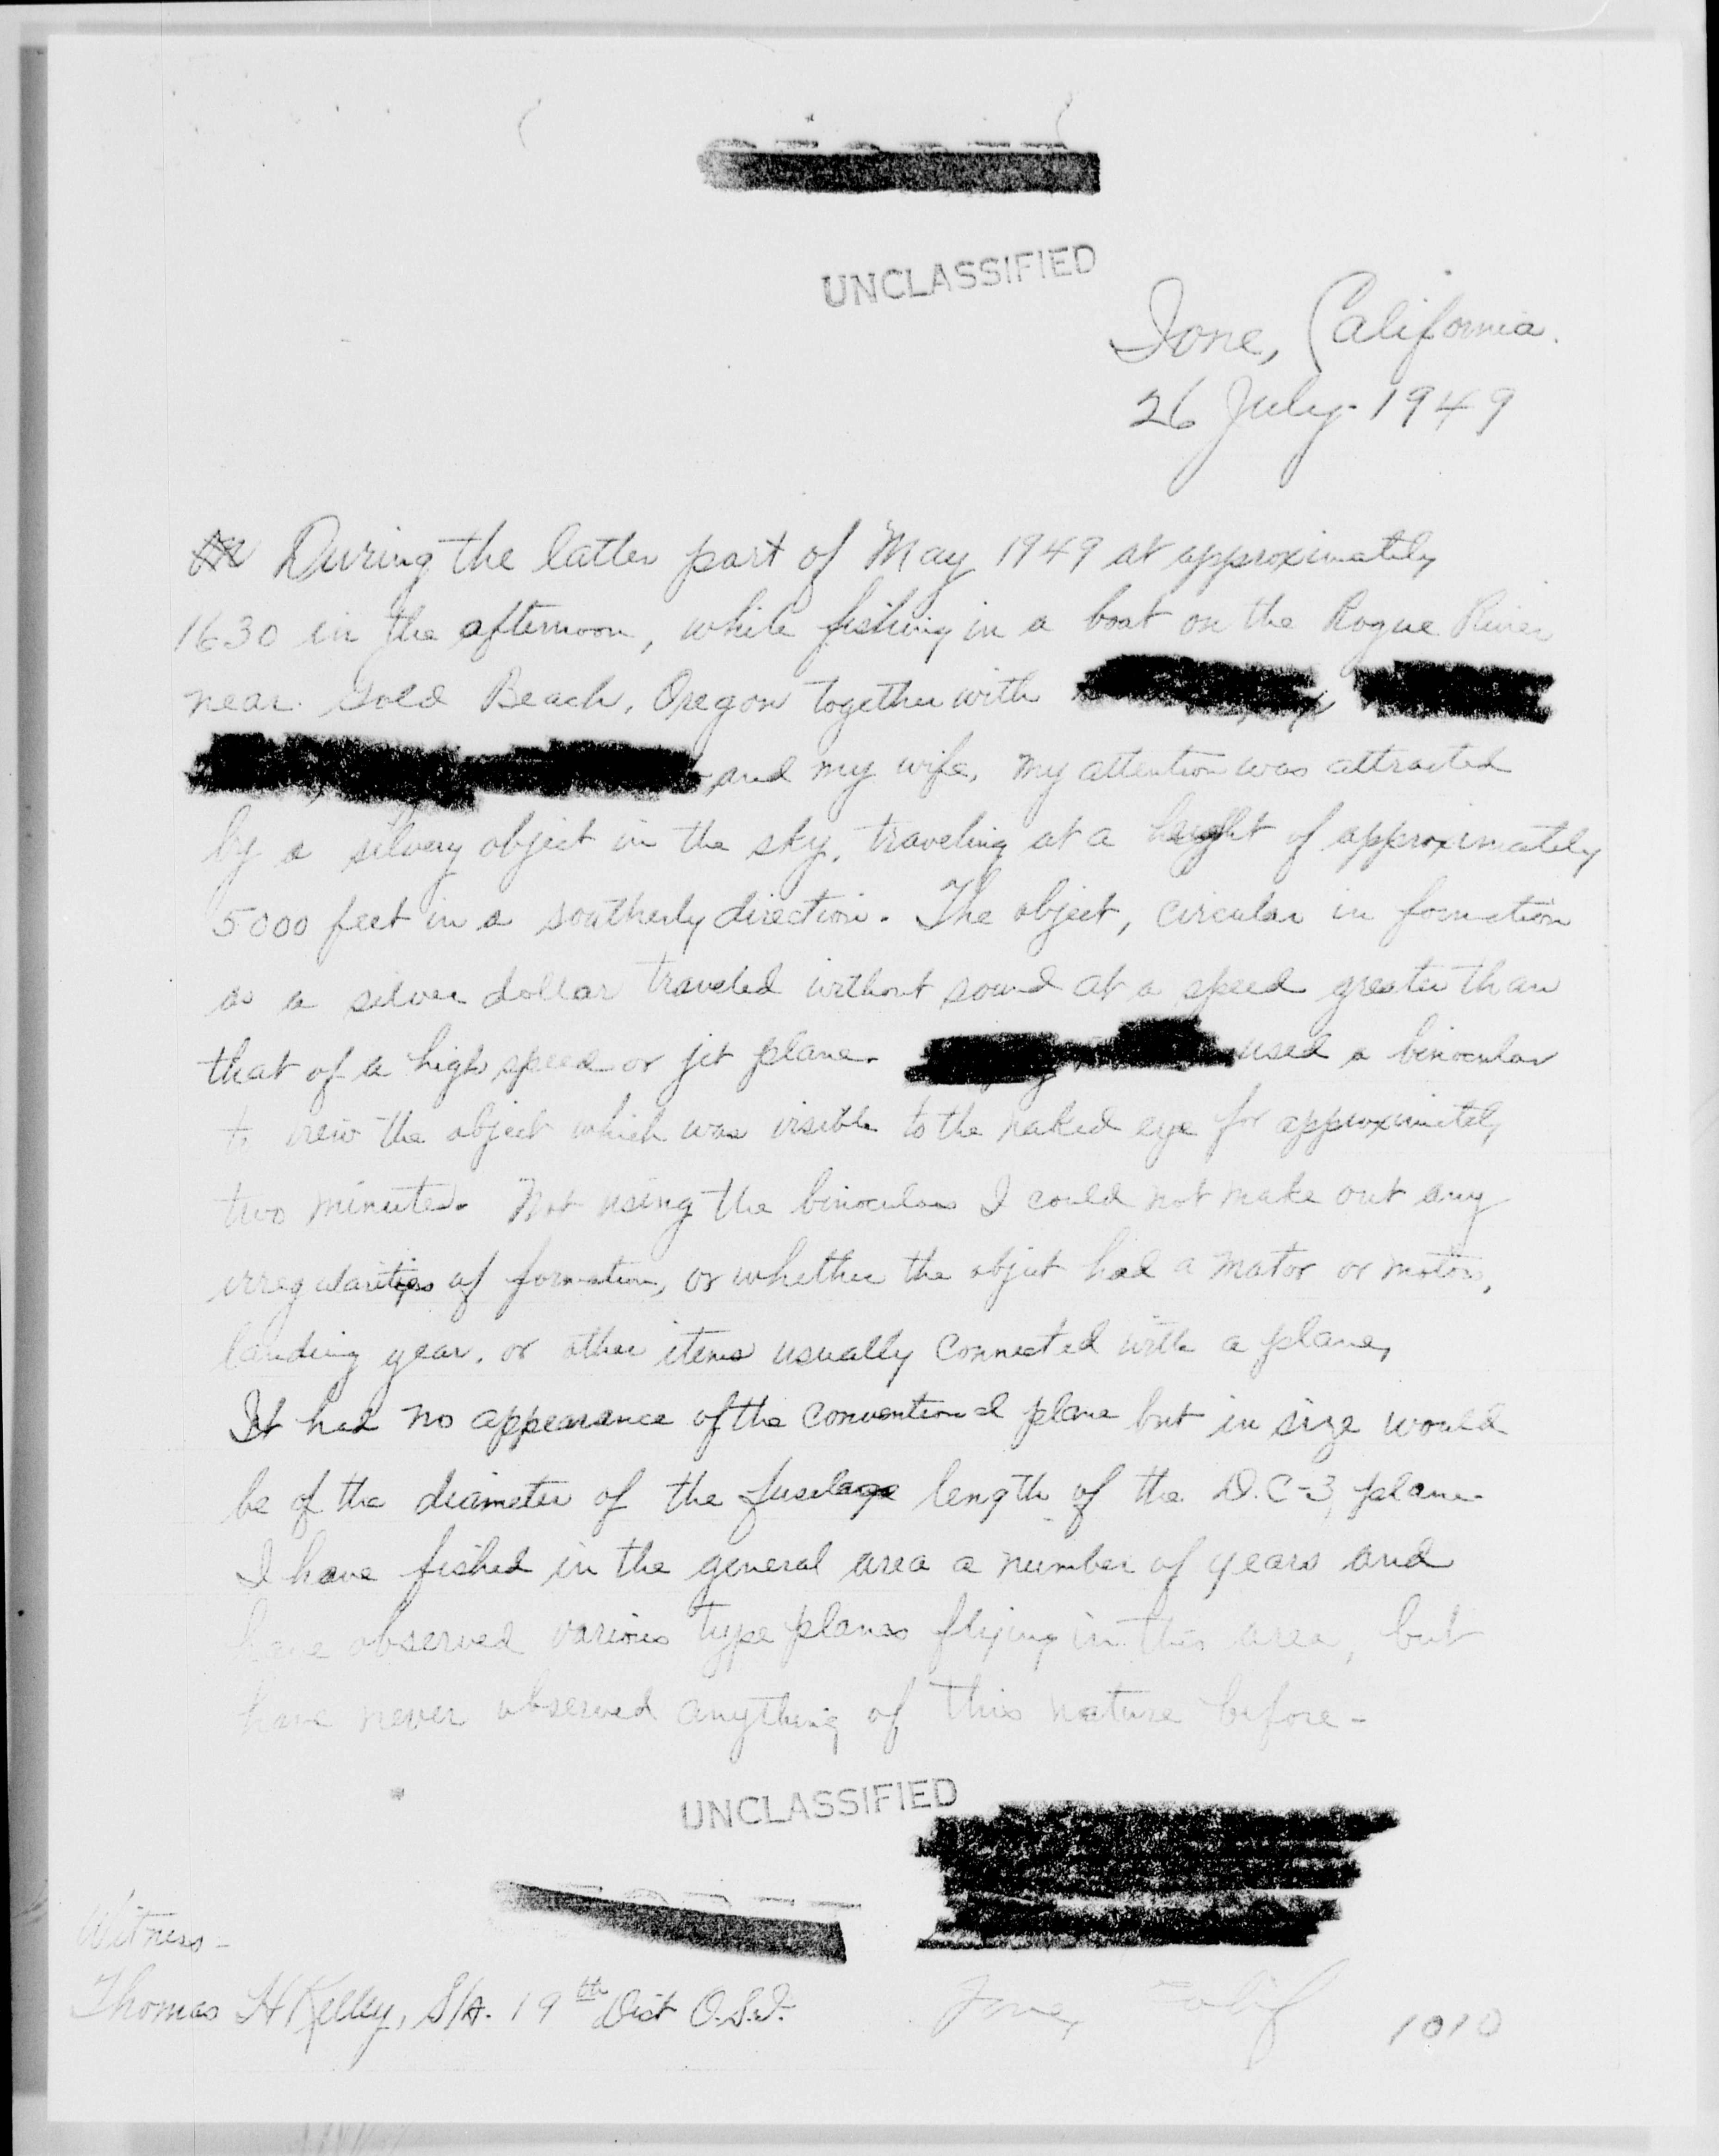 UNCLASSIFIED
Ione, California.
26 July - 1949
During the latter part of May 1949 at approximately
1630 in the afternoon, while fishing in a boat on the Rogue River
near Gold Beach, Oregon together with
and my wife, my attention was attracted
by a silvery object in the sky, traveling at a height of approximately
5000 feet in a southerly direction. The object, circular in formation
as a silver dollar traveled without sound at a speed greater than
that of a high speed or jet plane. used a binocular
to view the object which was visible to the naked eye for approximately
two minutes. Not using the binoculars I could not make out any
irregularities of formation, or whether the object had a motor or motors,
landing gear, or other items usually connected with a plane,
It had no appearance of the conventional plane but in size would
be of the diameter of the fuselage length of the D.C-3, plane.
I have fished in the general area a number of years and
have observed various type planes flying in this area, but
have never observed anything of this nature before -
UNCLASSIFIED
Witness -
Thomas H Kelley, S/A. 19th Dist O.S.I.
Ione, Calif
1010